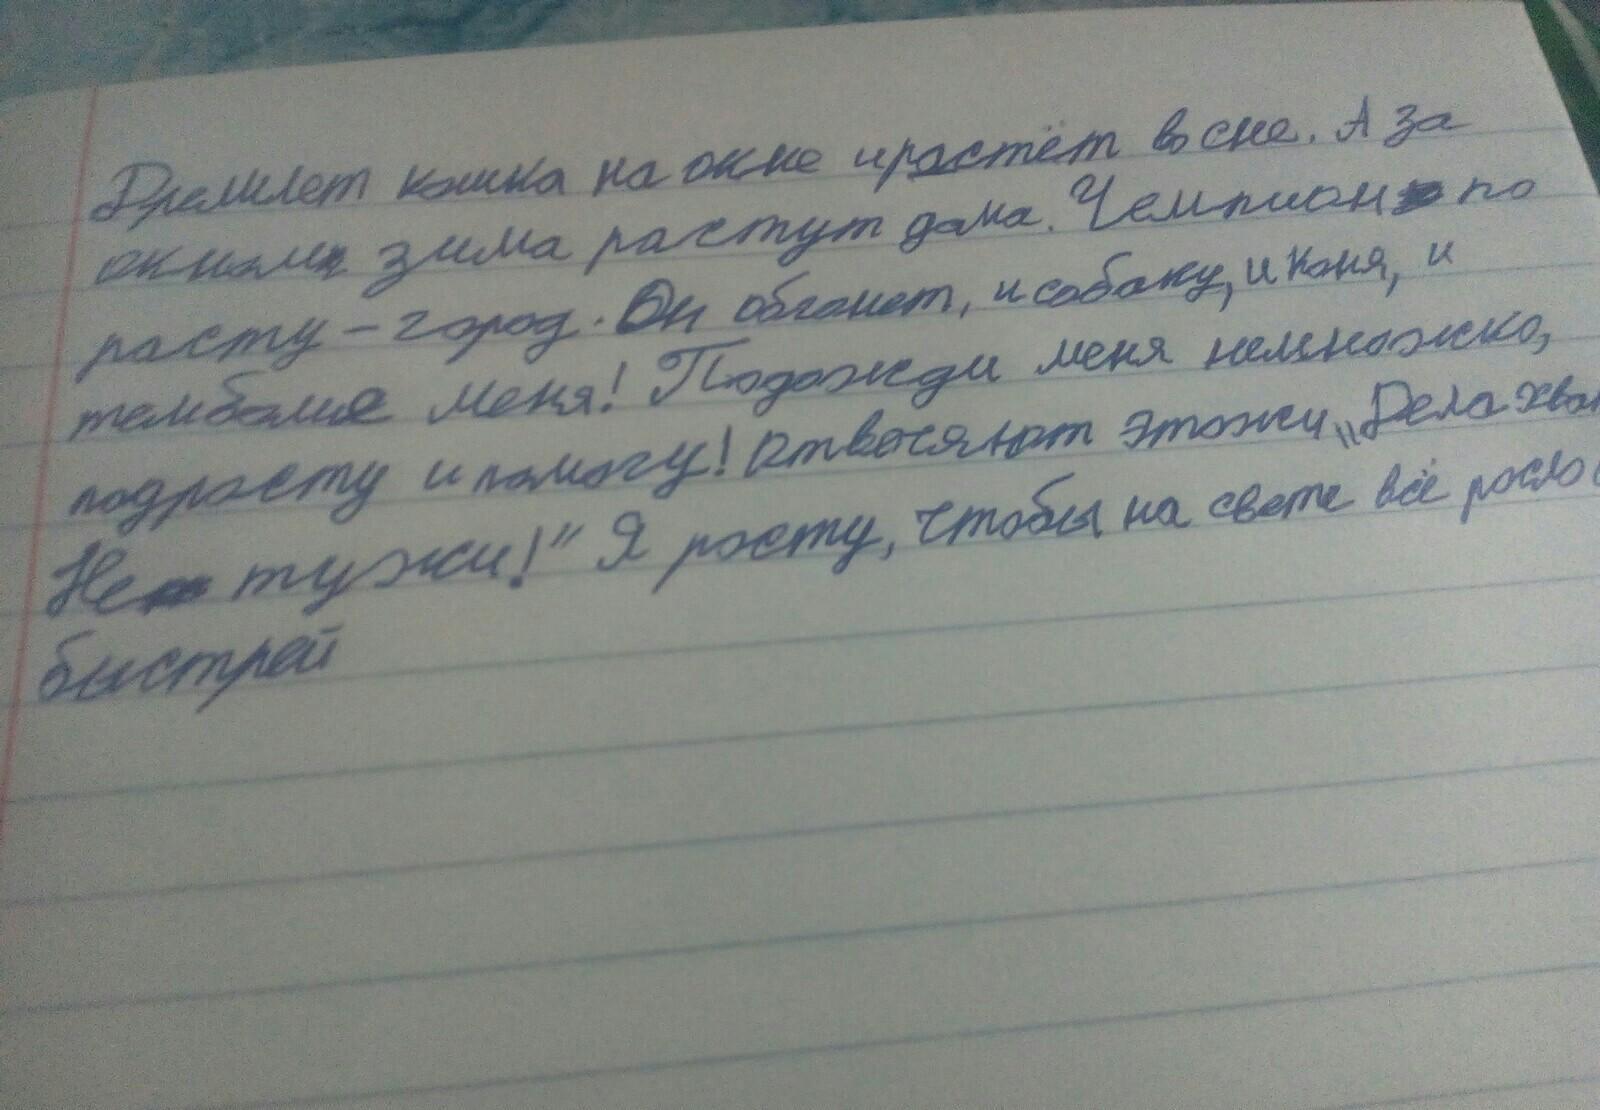 Дремлет кошка на окне и растёт во сне. А за
окном зима растут дома. Чемпион по
расту - город. Он обгонет, и собаку, и коня, и
темболие меня! Подожди меня немножко,
подросту и помогу! Отвечяют этожи „Дела хва
Не тужи!" Я росту, чтобы на свете всё росло
быстрей